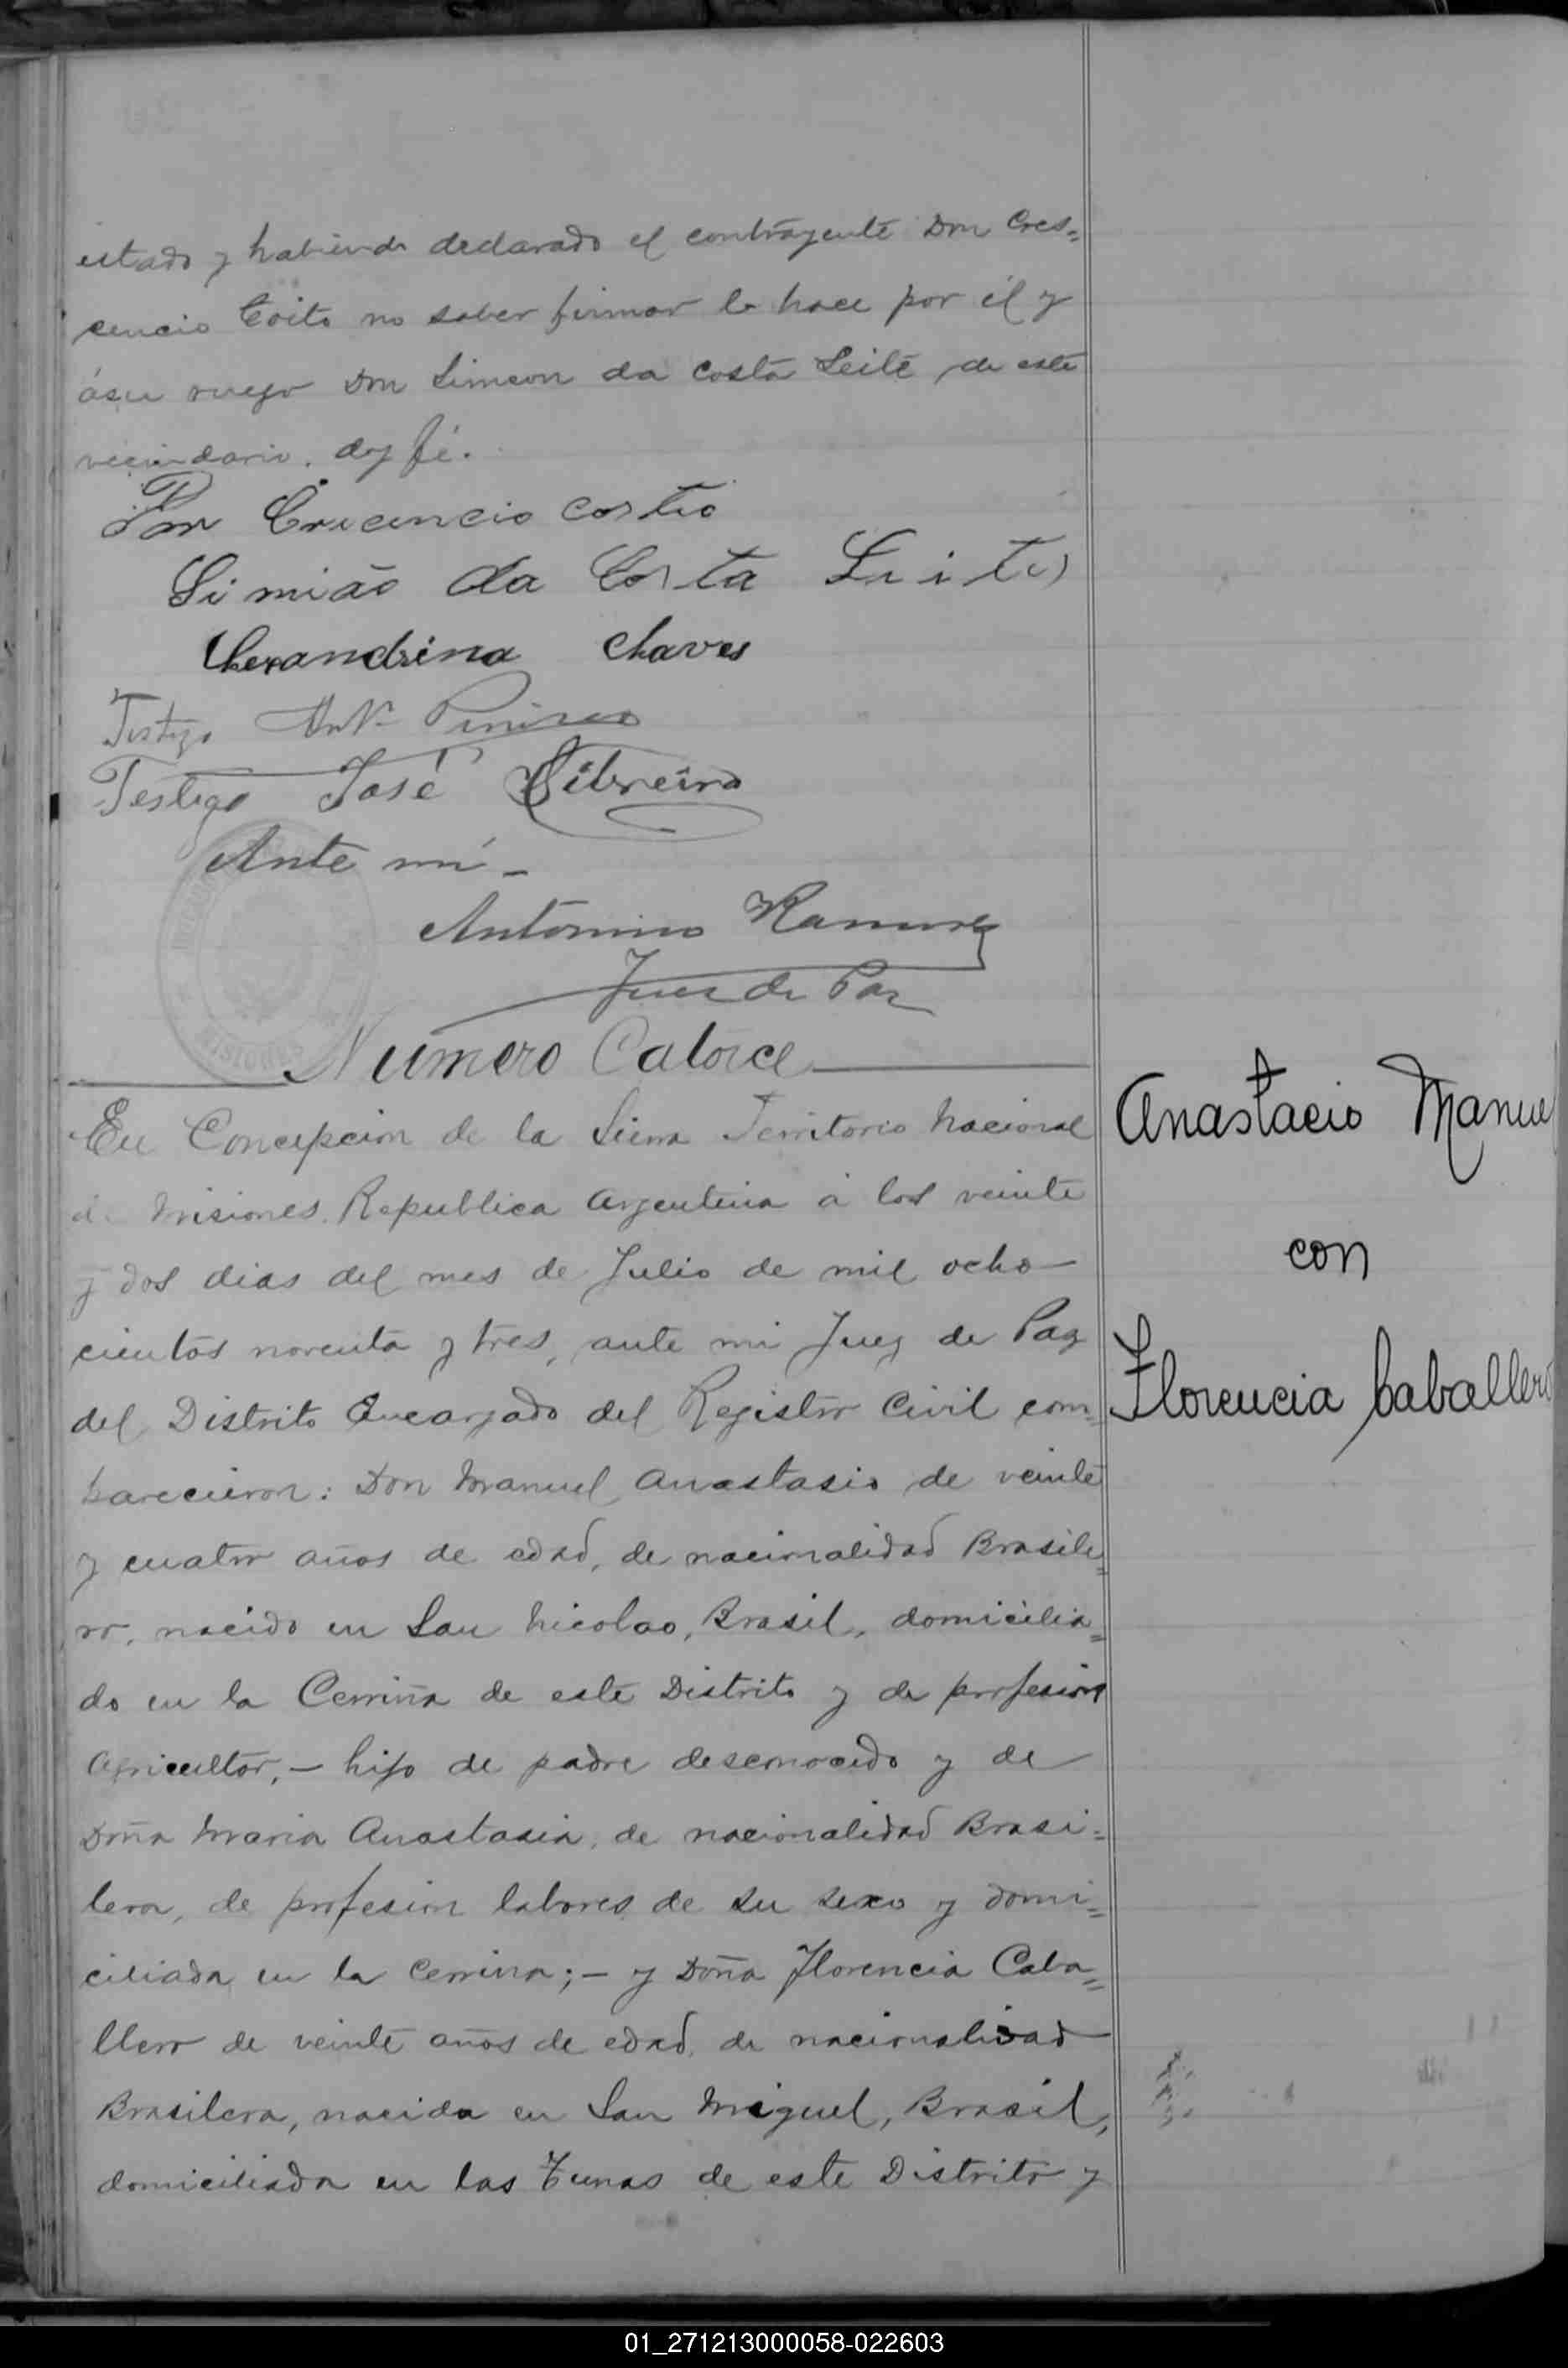 estado y habiendo declarado el contrayente Don Cres=
cencio Coito no saber firmar lo hace por él y
ásu ruego Don Simeon da Costa Leite de este
vecindario. doy fé.
Por Crecencio Costio
Simião da Costa Leite
Chexandrina Chaves
Testigo Ant.
Testigo José Ribreiro
Ante mi -
Antonino Ramirez
Juez de Paz
Numero Catorce
En Concepcion de la Sierra Territorio Nacional
de Misiones. Republica Argentina á los veinte
y dos dias del mes de Julio de mil ocho
cientos noventa y tres, ante mi Juez de Paz
del Distrito Encargado del Registro Civil com=
parecieron: Don Manuel Anastasio de veinte
y cuatro años de edad, de nacionalidad Brasile=
ro, nacido en San Nicolao, Brasil, domicilia=
do en la Cerrina de este Distrito y de profesion
Agricultor, - hijo de padre desconocido y de
Doña Maria Anastasia, de nacionalidad Brasi=
lera, de profesion labores de su sexo y domi=
ciliada en la Cerrina; - y Doña Florencia Caba=
llero de veinte años de edad, de nacionalidad
Brasilera, nacida en San Miguel, Brasil,
domiciliada en las Tunas de este Distrito y
Anastacio Manuel
con
Florencia Caballero
MISIONES
01_271213000058-022603